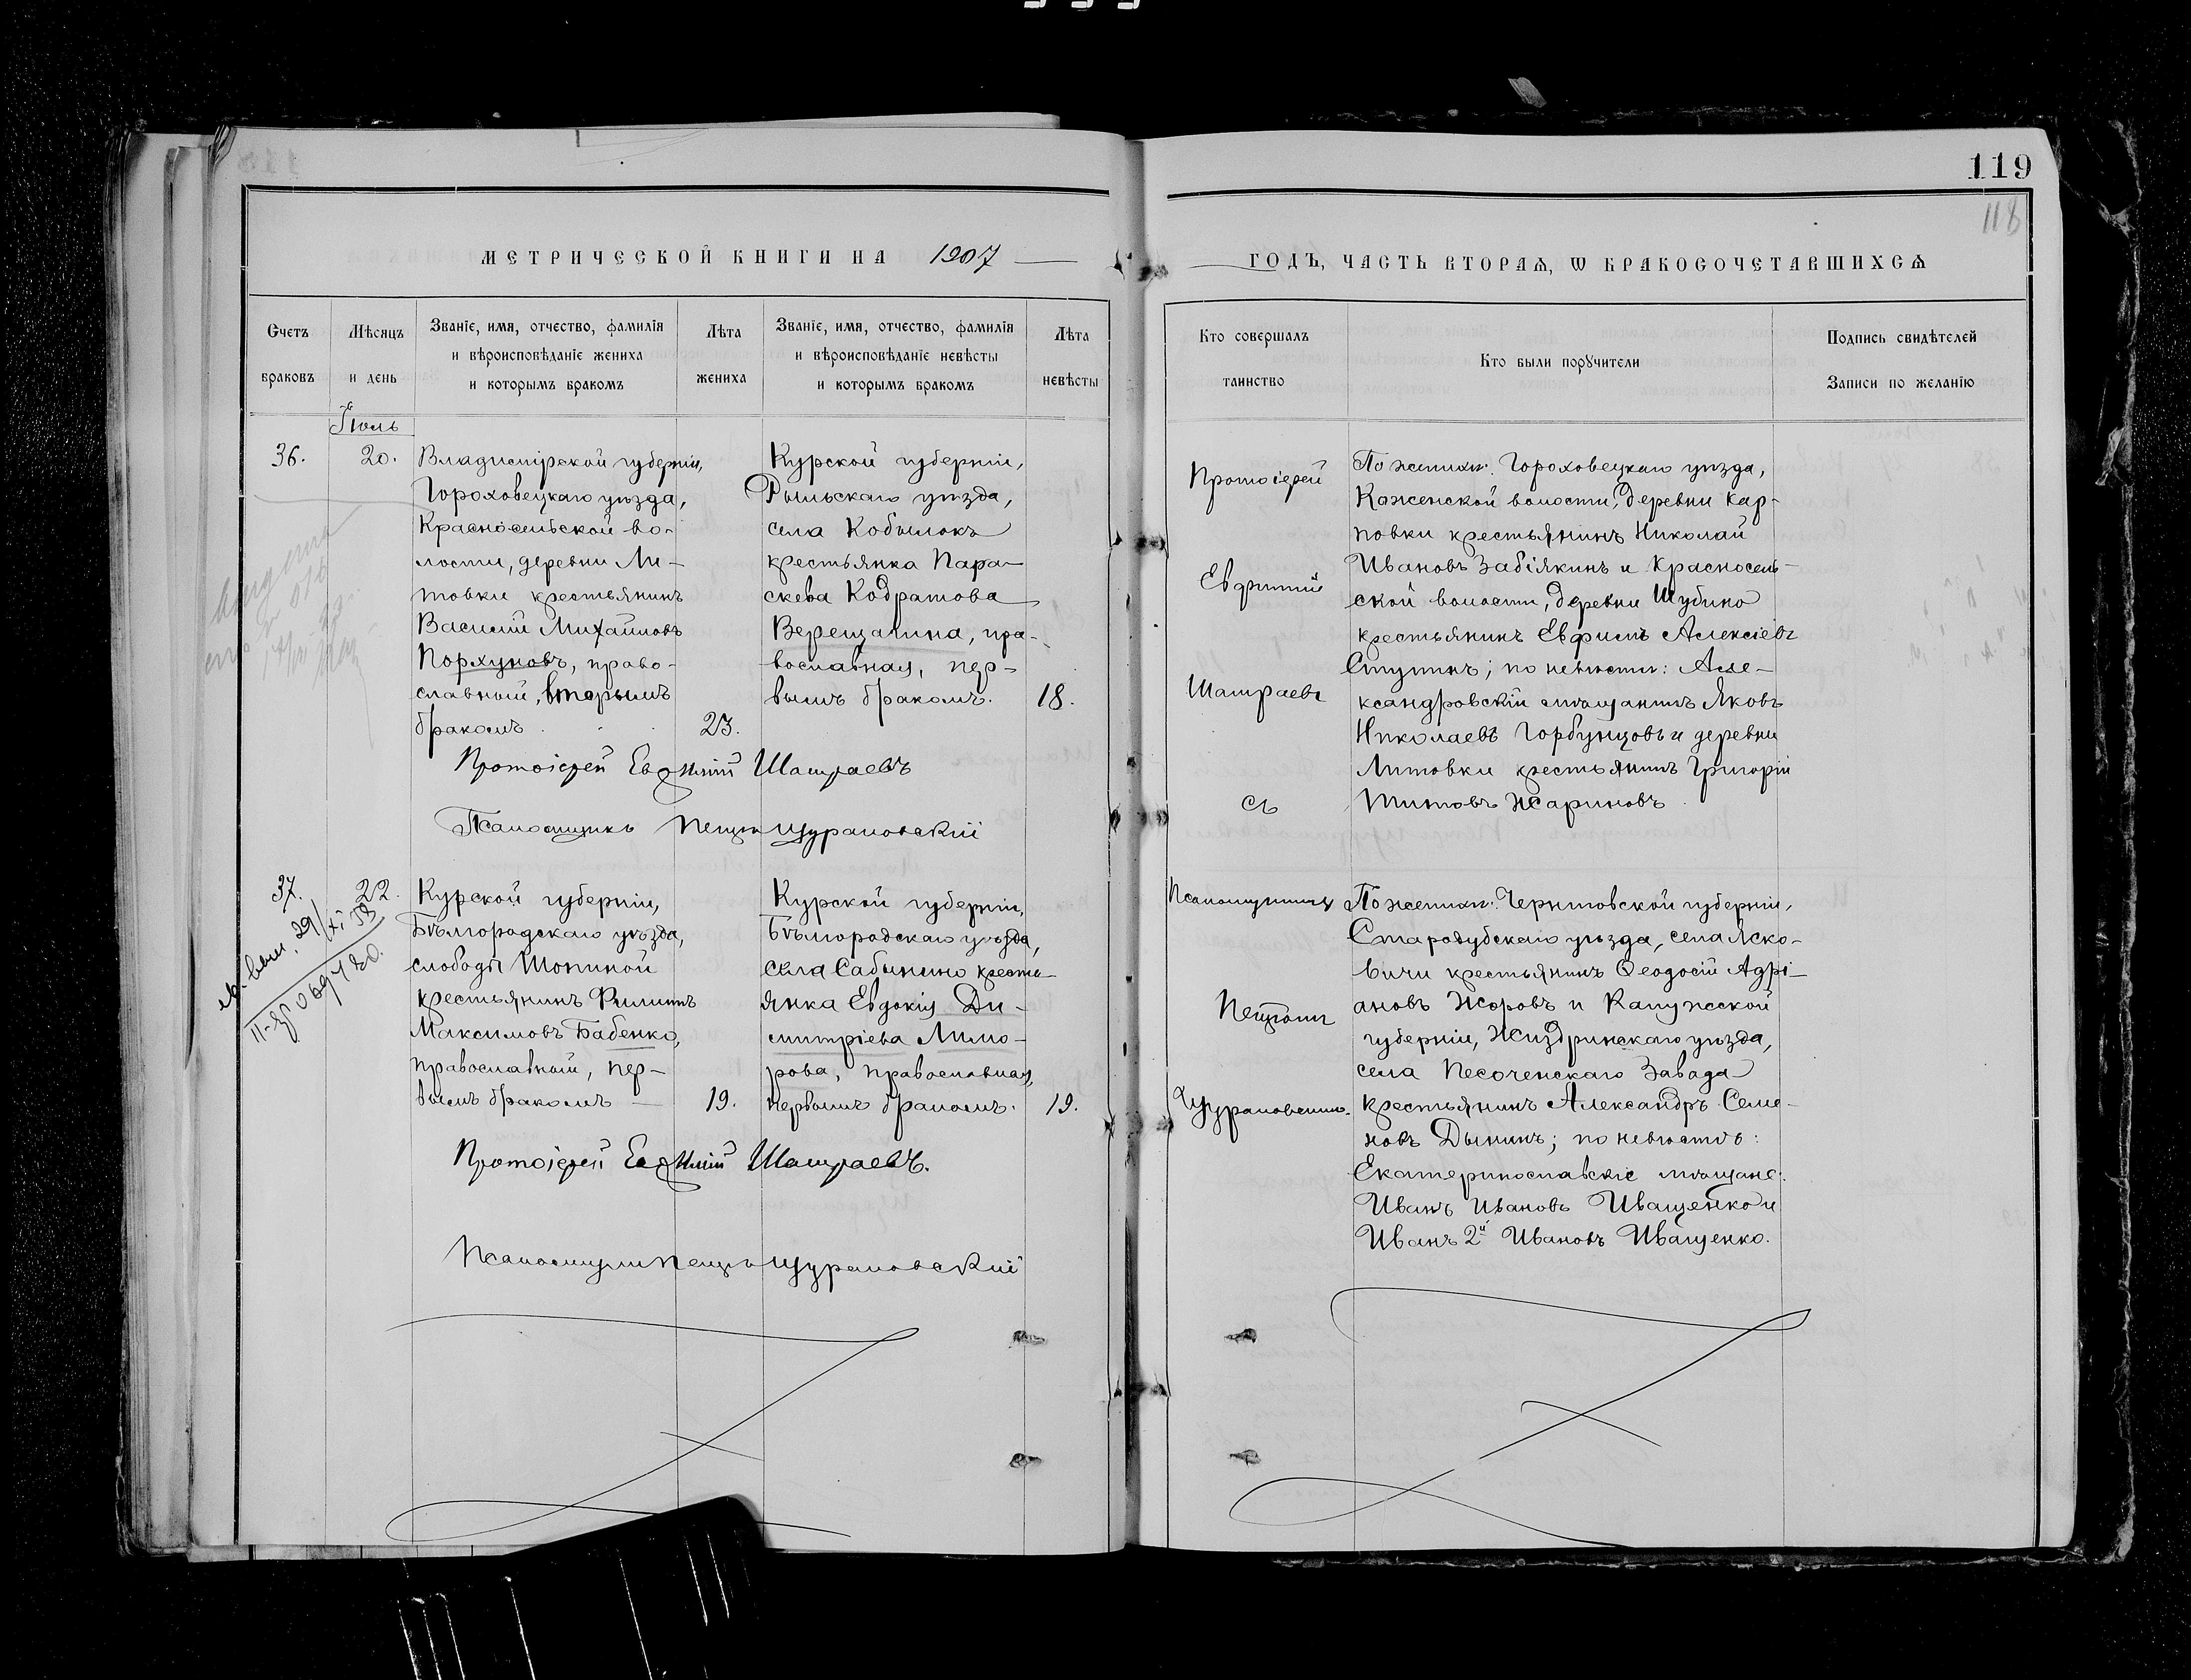 119
118
МЕТРИЧЕСКОЙ КНИГИ НА 1907
ГОДЪ, ЧАСТЬ ВТОРАѦ, Ѡ БРАКОСОЧЕТАВШИХСѦ
Счетъ браковъ
Мѣсяцъ и день
Званіе, имя, отчество, фамилія
и вѣроисповѣданіе жениха
и которымъ бракомъ
Лѣта жениха
Званіе, имя, отчество, фамилія
и вѣроисповѣданіе невѣсты
и которымъ бракомъ
Лѣта невѣсты
Кто совершалъ таинство
Кто были порꙋчители
Подпись свидѣтелей
Записи по желанію
Іюль
36.
20.
Владимірской губерніи,
Гороховецкаго уѣзда,
Красносельской во-
лости, деревни Ли-
товки крестьянинъ
Василій Михайловъ
Порхуновъ, право-
славный, вторымъ
бракомъ
23.
Курской губерніи,
Рыльскаго уѣзда,
села Кобылокъ
крестьянка Пара-
скева Кодратова
Верещагина, пра-
вославная, пер-
вымъ бракомъ.
18.
Протоіерей Евфимій Шатраевъ
Псаломщикъ Петръ
Протоіерей
Евфимій
Шатраевъ
съ
По женихѣ: Гороховецкаго уѣзда,
Коженской волости, деревни Кар-
повки крестьянинъ Николай
Ивановъ Забіякинъ и Красносель-
ской волости, деревни Шубино
крестьянинъ Евфимъ Алексіевъ
Ступинъ; по невѣстѣ: Але-
ксандровскій мѣщанинъ Яковъ
Николаевъ Горбунцовъ и деревни
Литовки крестьянинъ Григорій
Титовъ Жариновъ
37.
22.
Курской губерніи,
Бѣлгородскаго уѣзда,
слободы Шопиной
крестьянинъ Филиппъ
Максимовъ Бабенко,
православный, пер-
вымъ бракомъ —
19.
Курской губерніи,
Бѣлгородскаго уѣзда,
села Сабынино кресть-
янка Евдокія Ди-
митріева Лимо-
рова, православная,
первымъ бракомъ.
19.
Протоіерей Евфимій Шатраевъ.
Псаломщикъ Петръ
Псаломщикомъ
Петромъ
По женихѣ: Черниговской губерніи,
Стародубскаго уѣзда, села Яско-
вичи крестьянинъ Ѳеодосій Адрі-
ановъ Жоровъ и Калужской
губерніи, Жиздринскаго уѣзда,
села Песоченскаго Завода
крестьянинъ Александръ Семе-
новъ Дынинъ; по невѣстѣ:
Екатеринославскіе мѣщане:
Иванъ Ивановъ Иващенко и
Иванъ 2й Ивановъ Иващенко.